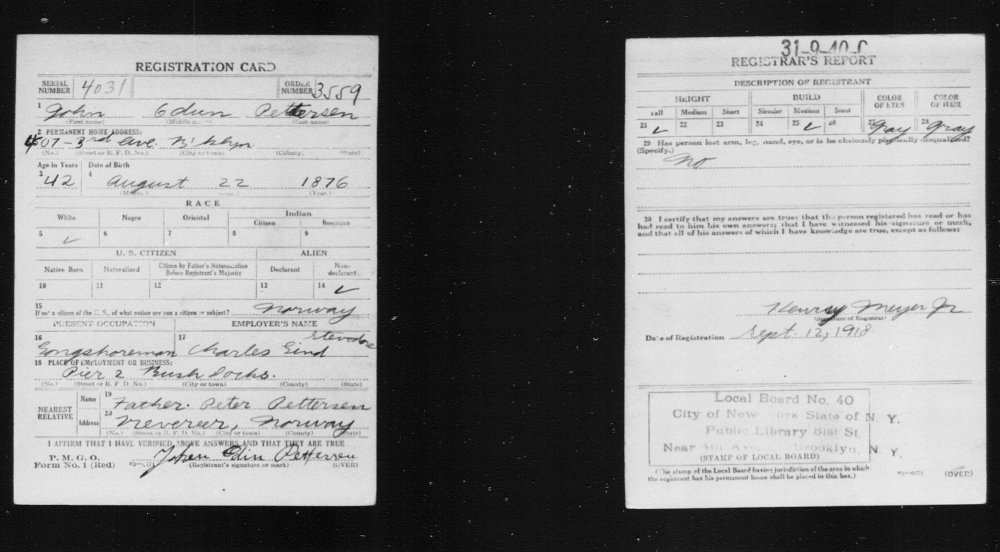 REGISTRATION CARD
SERIAL NUMBER 4031 ORDER NUMBER 3559
1 John Edun Pettersen
(First name) (Middle name) (Last name)
2 PERMANENT HOME ADDRESS:
407-3rd Ave. B'klyn
(No.) (Street or R. F. D. No.) (City or town) (County) (State)
Age in Years Date of Birth
3 42 4 August 22 1876
(Month.) (Day.) (Year.)
RACE
White Negro Oriental Indian
Citizen Noncitizen
5 ✓ 6 7 8 9
U. S. CITIZEN ALIEN
Native Born Naturalized Citizen by Father's Naturalization Before Registrant's Majority Declarant Non-declarant
10 11 12 13 14 ✓
15 If not a citizen of the U. S., of what nation are you a citizen or subject? Norway
PRESENT OCCUPATION EMPLOYER'S NAME
16 Longshoreman 17 Charles Stevedore
18 PLACE OF EMPLOYMENT OR BUSINESS:
Pier 2 Bush Docks.
(No.) (Street or R. F. D. No.) (City or town) (County) (State)
NEAREST RELATIVE Name 19 Father. Peter Pettersen
Address 20 Norway
(No.) (Street or R. F. D. No.) (City or town) (County) (State)
I AFFIRM THAT I HAVE VERIFIED ABOVE ANSWERS AND THAT THEY ARE TRUE
P. M. G. O.
Form No. 1 (Red) John Edin Pettersen
(Registrant's signature or mark) (OVER)
31-9-40-C
REGISTRAR'S REPORT
DESCRIPTION OF REGISTRANT
HEIGHT BUILD COLOR OF EYES COLOR OF HAIR
Tall Medium Short Slender Medium Stout
21 ✓ 22 23 24 25 ✓ 26 27 Gray 28 Gray
29 Has person lost arm, leg, hand, eye, or is he obviously physically disqualified?
(Specify.) No
30 I certify that my answers are true; that the person registered has read or has
had read to him his own answers; that I have witnessed his signature or mark,
and that all of his answers of which I have knowledge are true, except as follows:
Henry Meyer Jr
(Signature of Registrar)
Date of Registration Sept. 12, 1918
Local Board No. 40
City of New York State of N. Y.
Public Library 51st St
Near 4th Ave. Brooklyn, N. Y.
(STAMP OF LOCAL BOARD)
(The stamp of the Local Board having jurisdiction of the area in which
the registrant has his permanent home shall be placed in this box.)
(OVER)